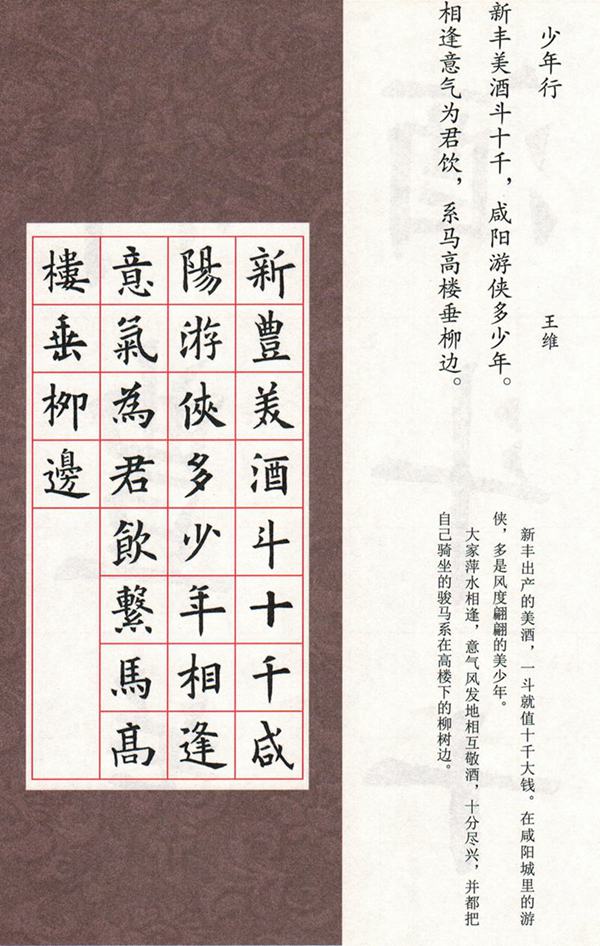 少年行
王维
新丰美酒斗十千，咸阳游侠多少年。
相逢意气为君饮，系马高楼垂柳边。
新丰出产的美酒，一斗就值十千大钱。在咸阳城里的游
侠，多是风度翩翩的美少年。
大家萍水相逢，意气风发地相互敬酒，十分尽兴，并都把
自己骑坐的骏马系在高楼下的柳树边。
新豊美酒斗十千咸
陽游俠多少年相逢
意氣為君飲繫馬高
樓垂柳邊